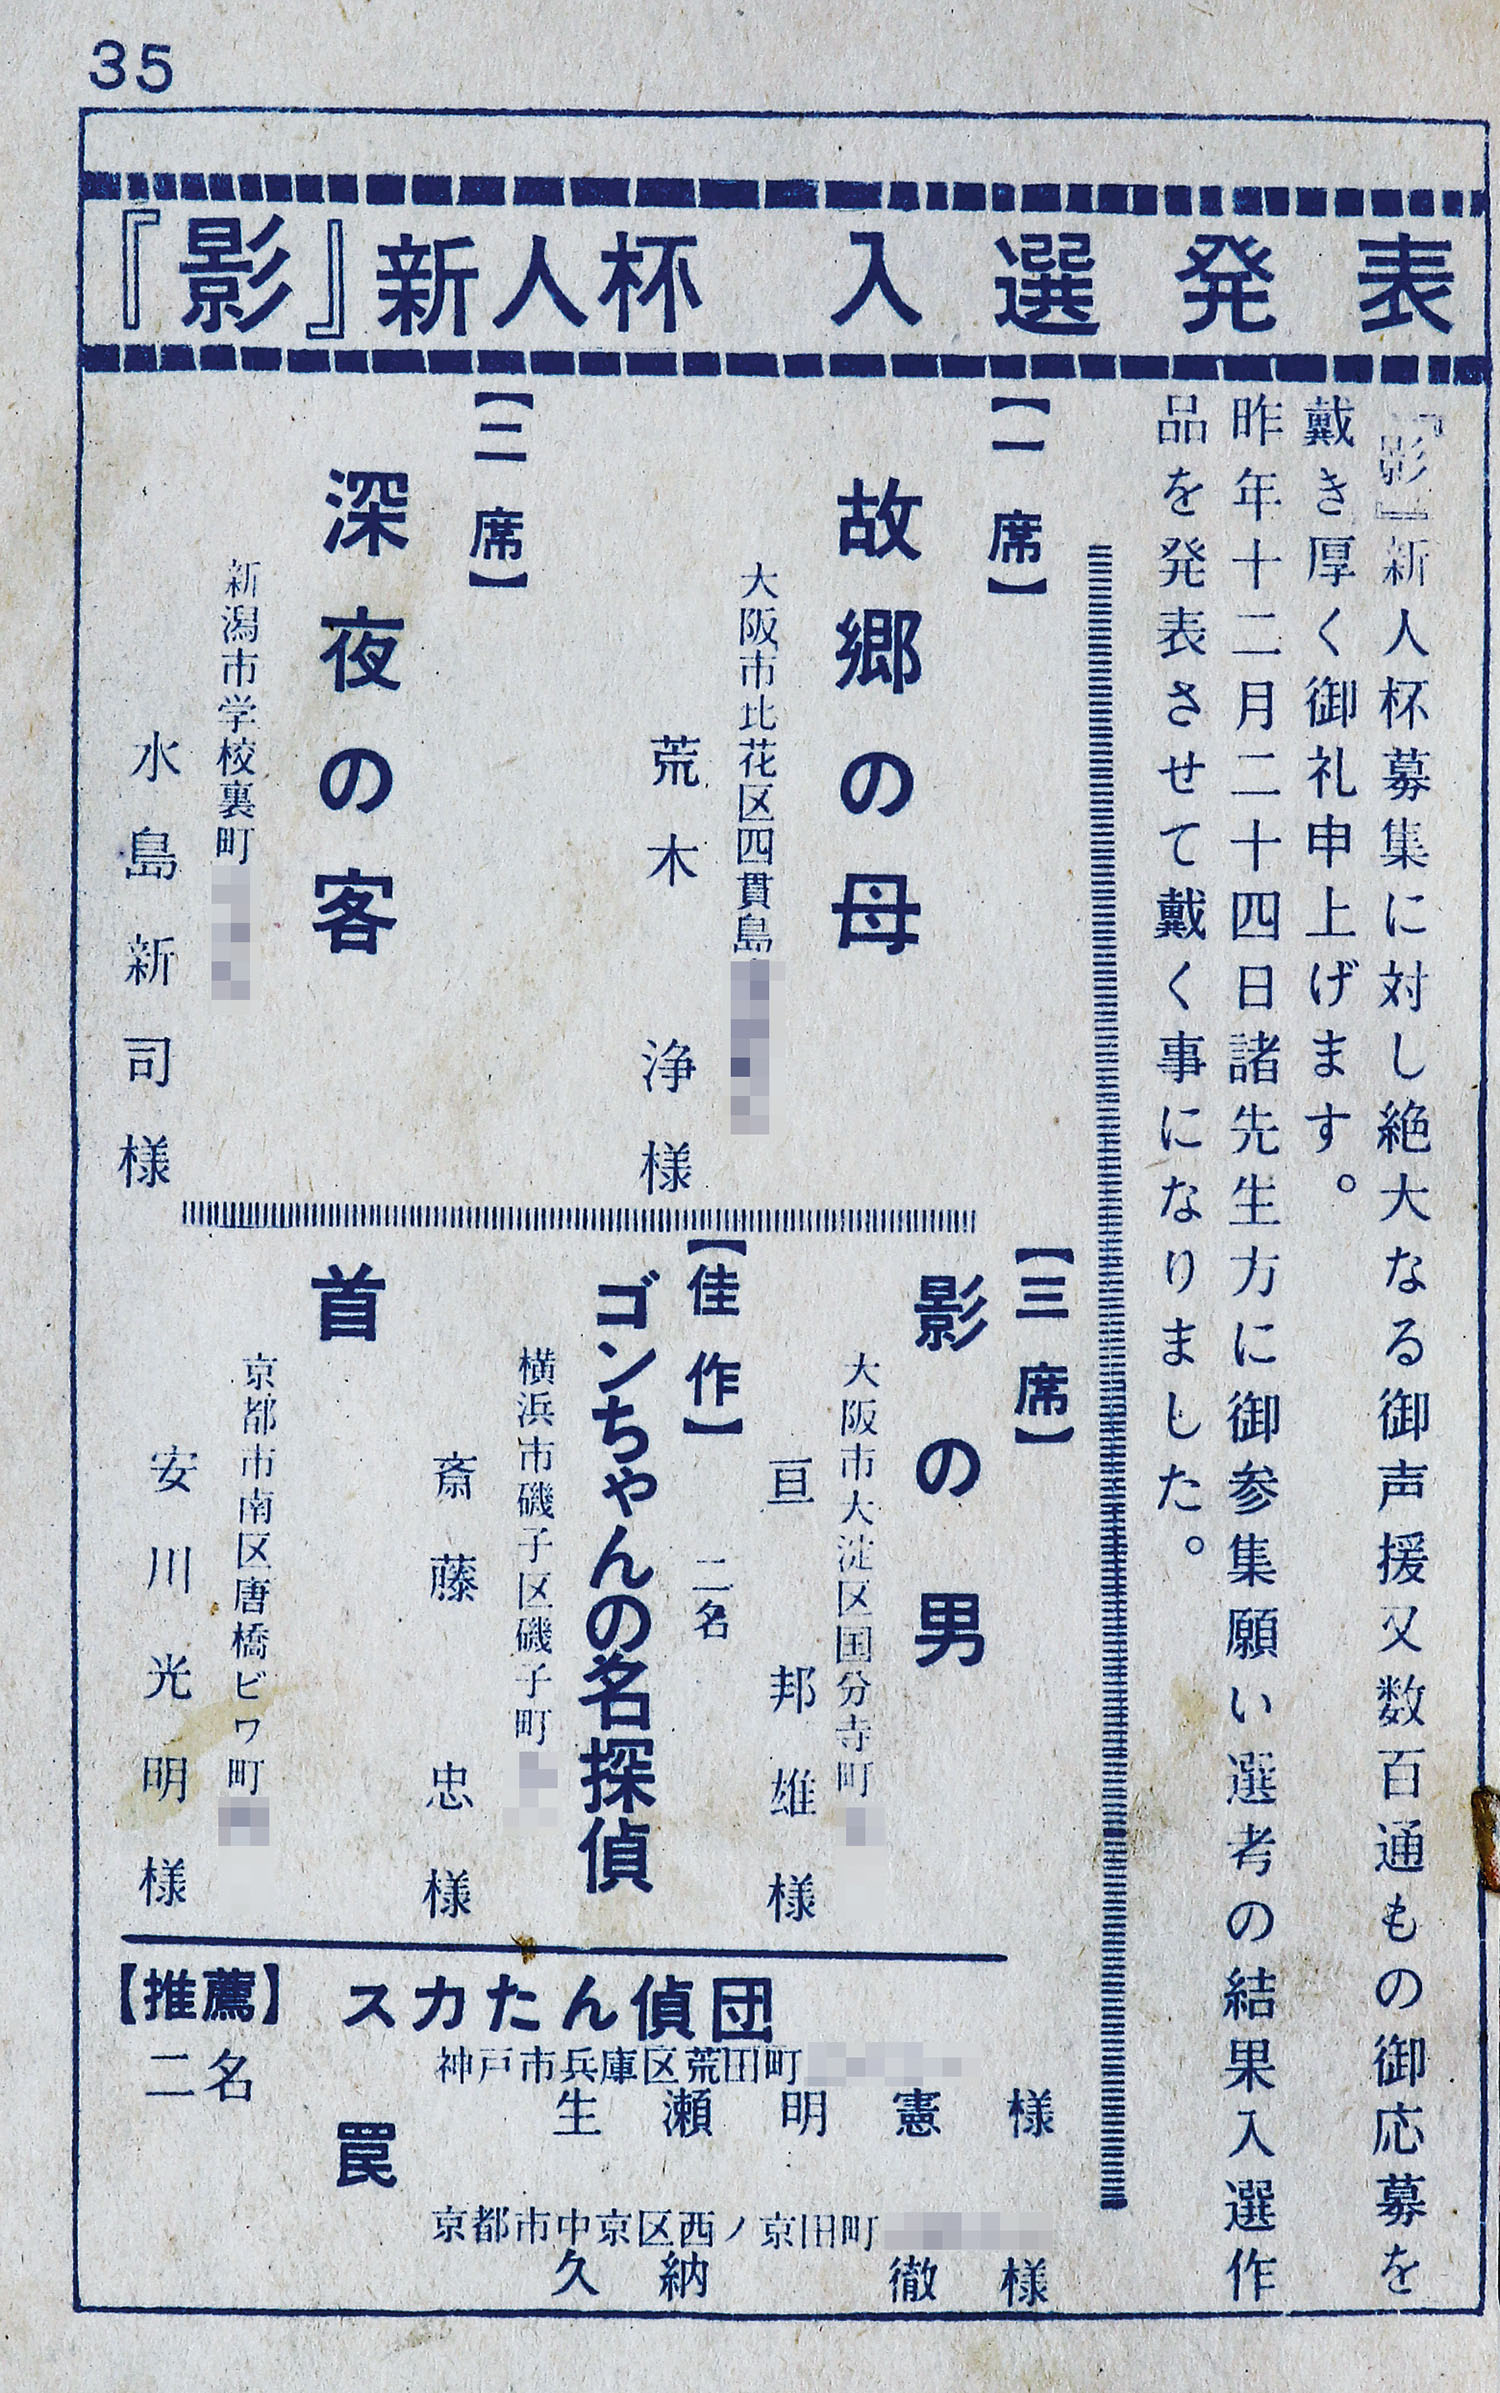 35
『影』新人杯 入選発表
『影』新人杯募集に対し絶大なる御声援又数百通もの御応募を
戴き厚く御礼申上げます。
昨年十二月二十四日諸先生方に御参集願い選考の結果入選作
品を発表させて戴く事になりました。
【一席】
故郷の母
大阪市此花区四貫島
荒木 浄様
【二席】
深夜の客
新潟市学校裏町
水島新司様
【三席】
影の男
大阪市大淀区国分寺町
亘 邦雄様
【佳作】 二名
ゴンちゃんの名探偵
横浜市磯子区磯子町
斎藤 忠様
首
京都市南区唐橋ビワ町
安川光明様
【推薦】
二名
スカたん偵団
神戸市兵庫区荒田町
生瀬明憲様
罠
京都市中京区西ノ京旧町
久納 徹様